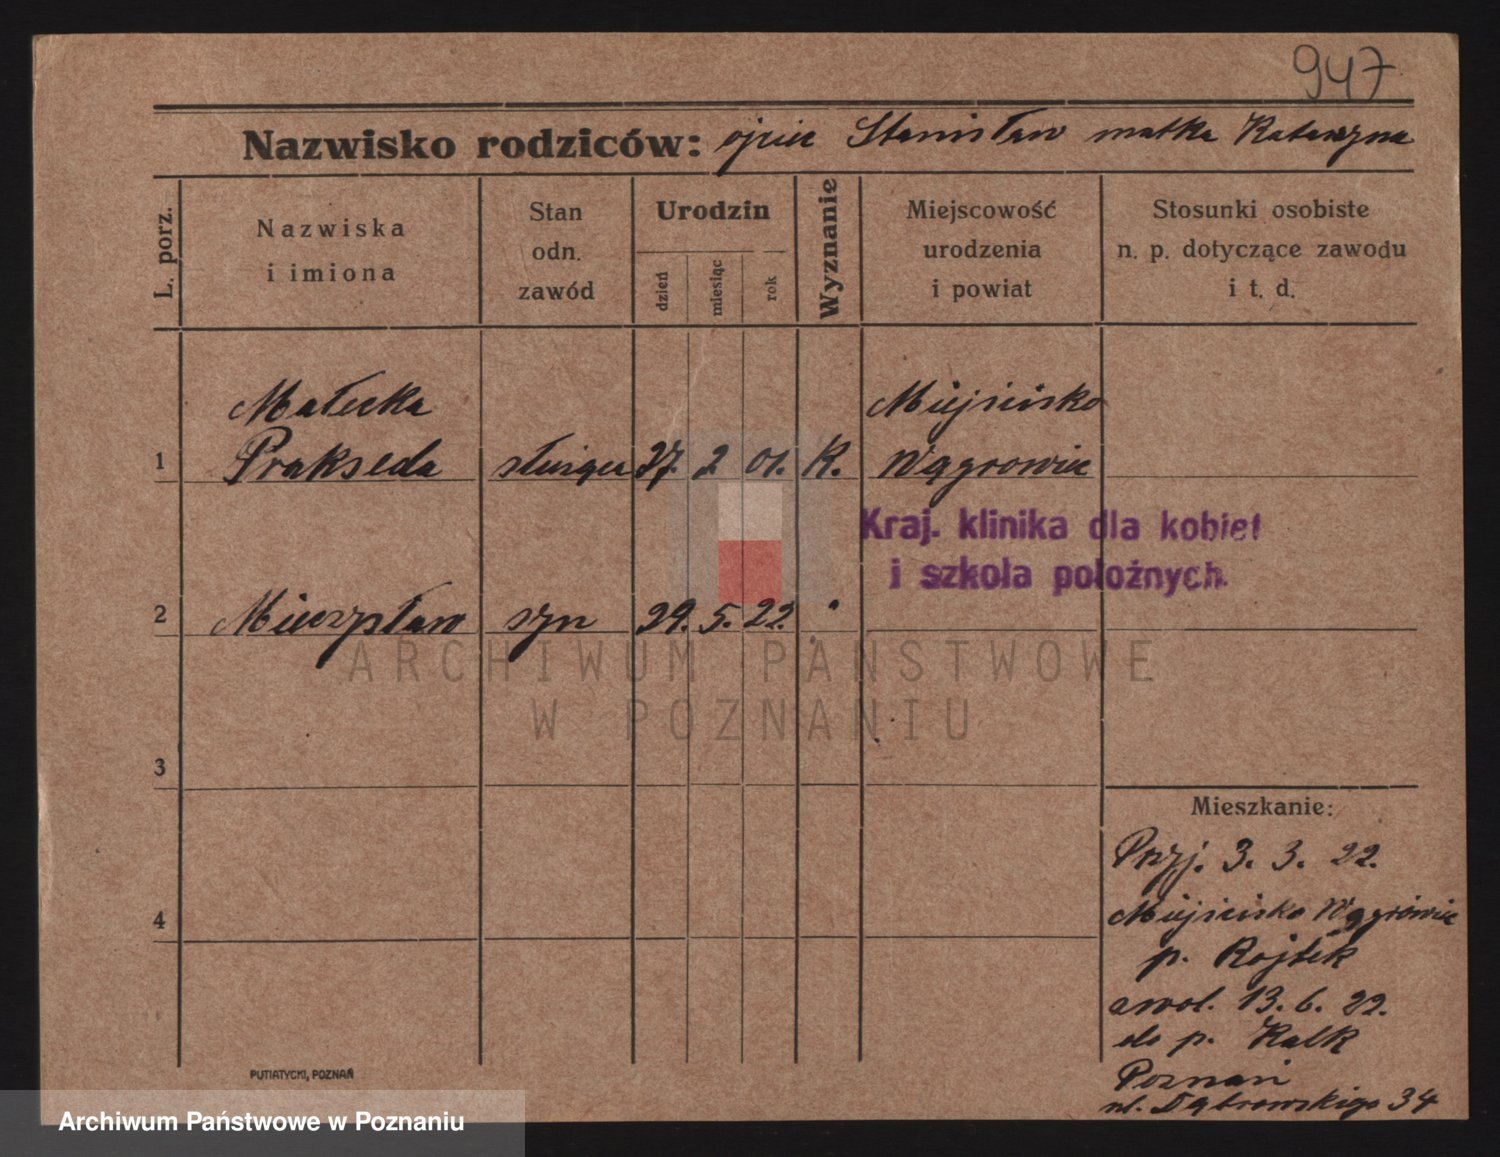 947
Nazwisko rodziców: ojciec Stanisław matka Katarzyna
L. porz.
Nazwiska
i imiona
Stan
odn.
zawód
Urodzin
dzień
miesiąc
rok
Wyznanie
Miejscowość
urodzenia
i powiat
Stosunki osobiste
n. p. dotyczące zawodu
i t. d.
Małecka Miejścisko
1 Prakseda służąca 27. 2 01. K. Wągrowiec
Kraj. klinika dla kobiet
i szkoła położnych.
2 Mieczysław syn 29. 5. 22.
ARCHIWUM PAŃSTWOWE
W POZNANIU
3
Mieszkanie:
Przyj. 3. 3. 22.
4 Miejścisko Wągrówiec
p. Rojtek
zwol. 13. 6. 22.
do p. Kalk
Poznań
ul. Dąbrowskiego 34
PUTIATYCKI, POZNAŃ
Archiwum Państwowe w Poznaniu